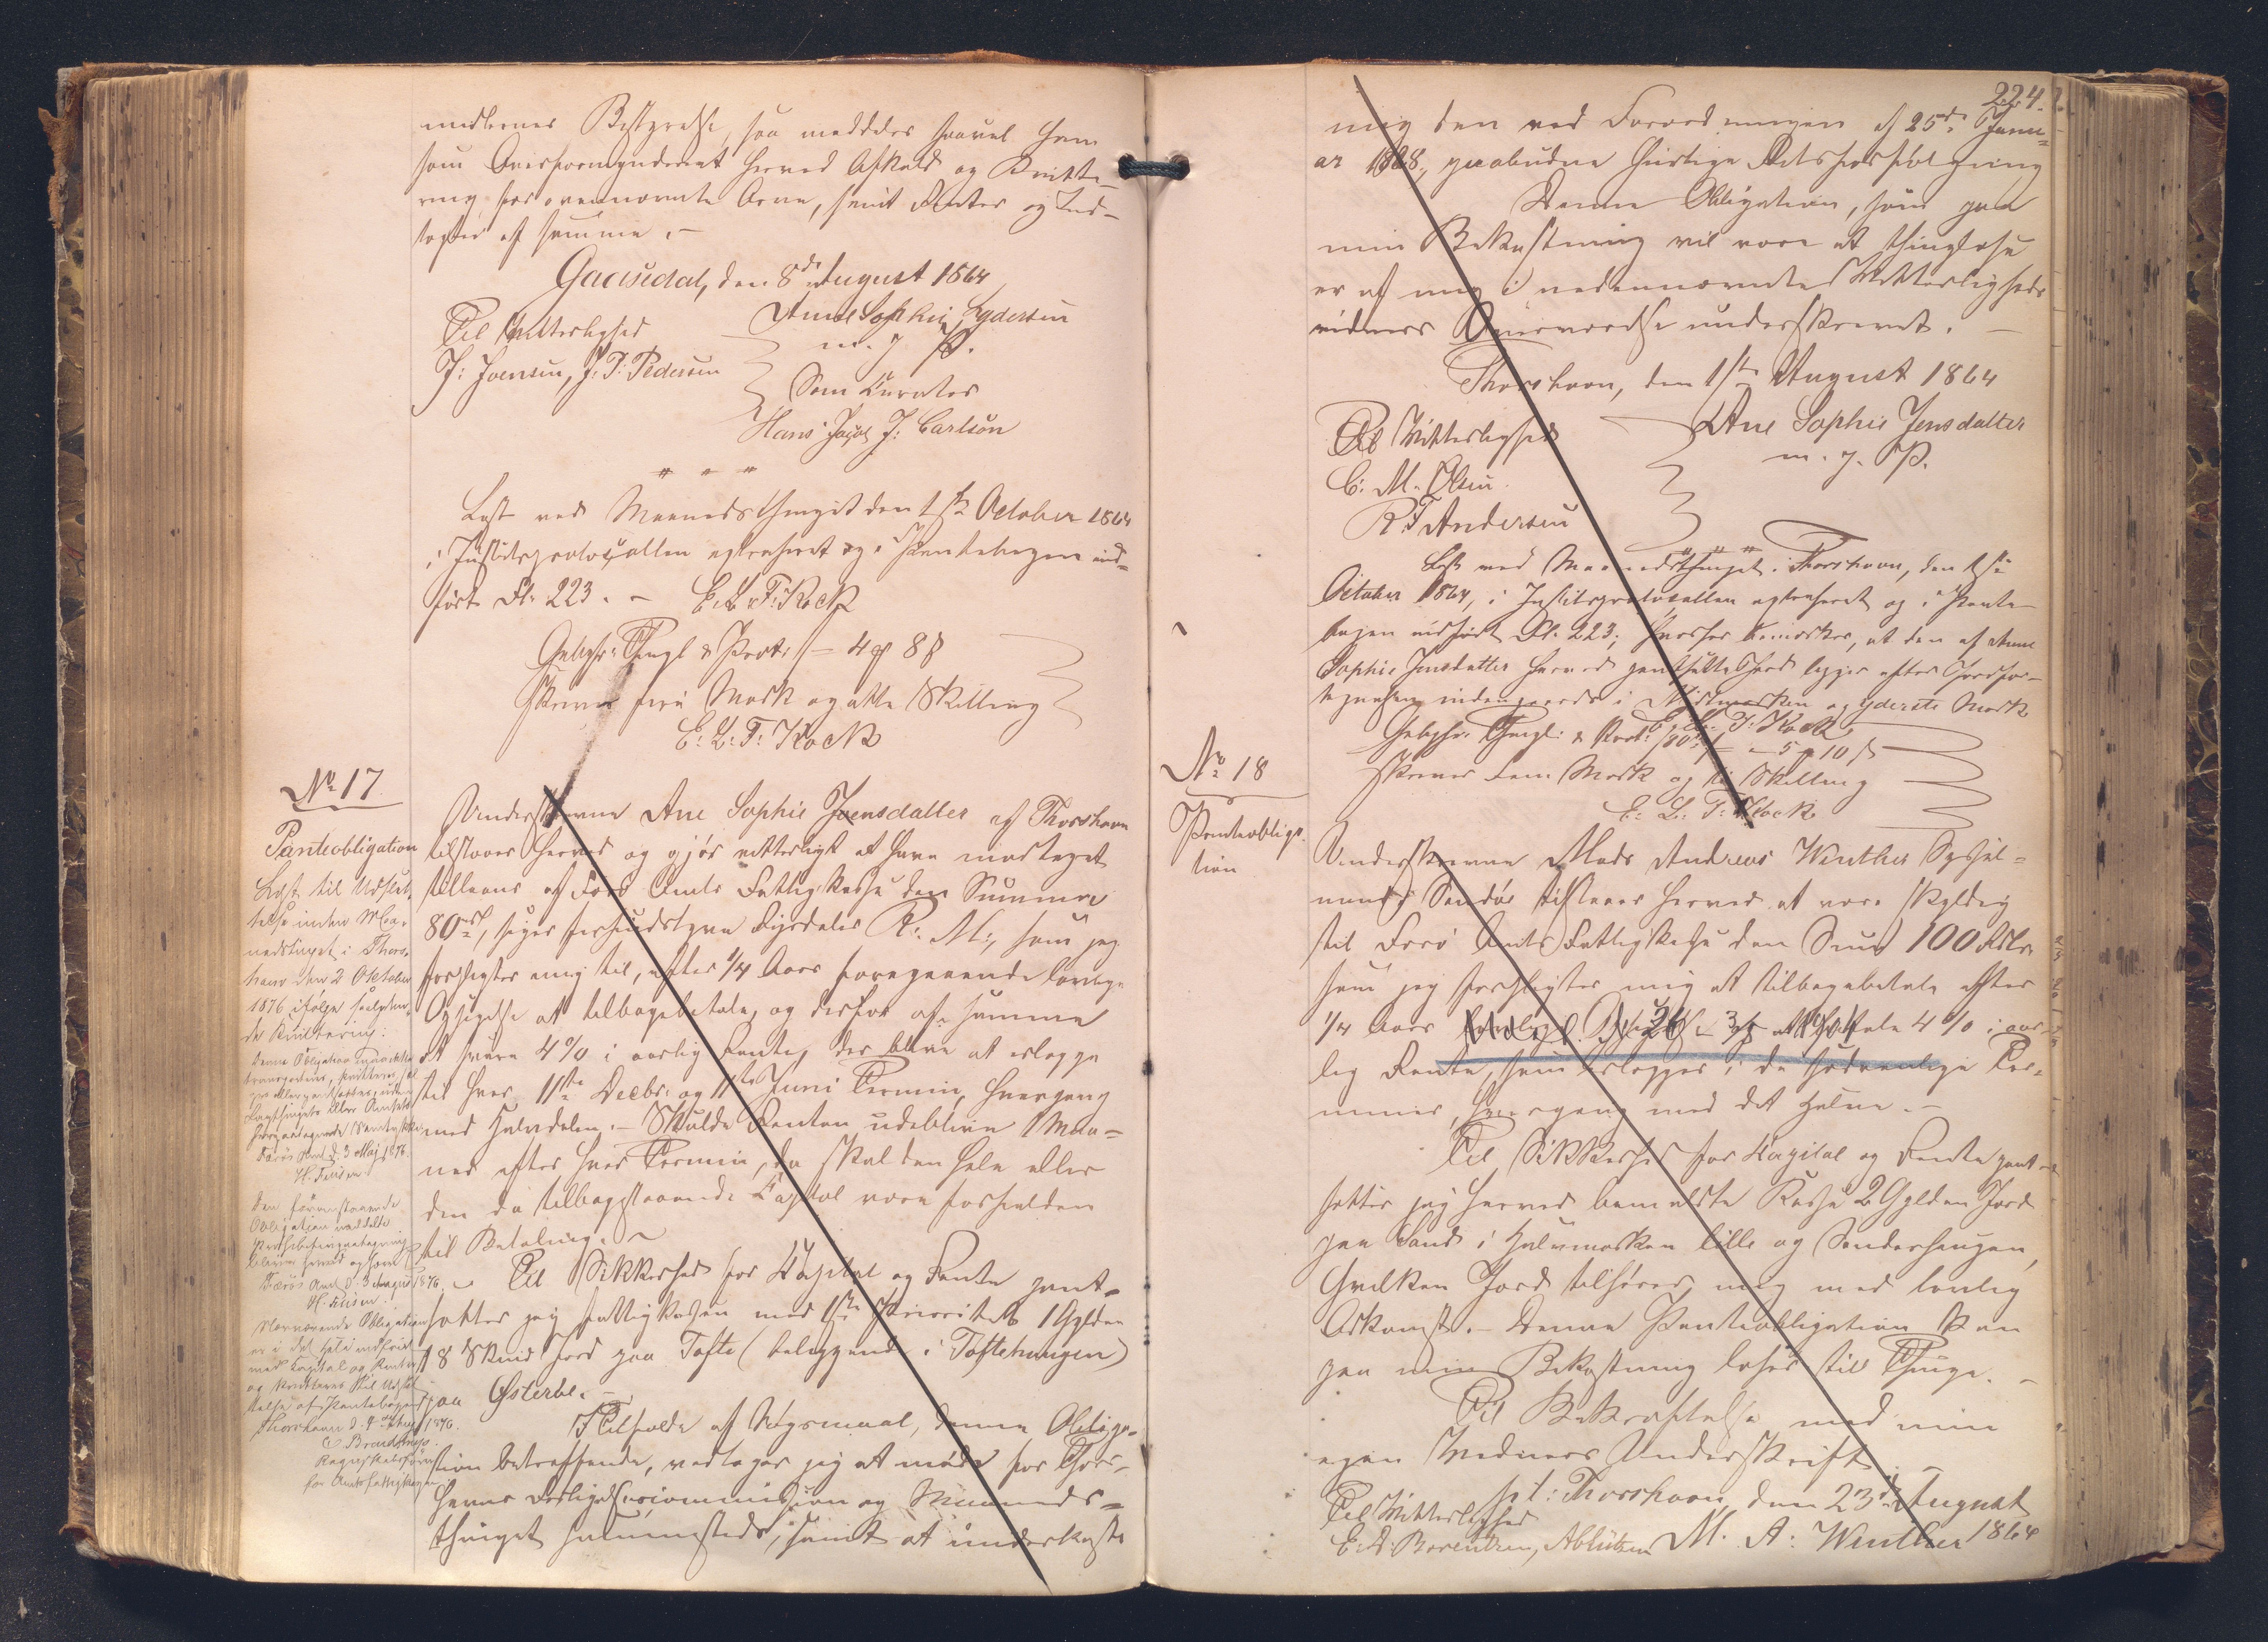 midlernes Bestyrelse, saa meddeles saavel ham
som Overformynderiet herved Afkald og Kvitte-
ring for ovennævnte Arve, samt Renter og Ind-
tægter af samme. -
Gaasedal, den 8de August 1864
Til Vitterlighed
J: Joensen, J: P: Pedersen
Anne Sophie Ydersen
m. f. P.
Som Curator
Hans Jacob J: Carlson
Læst ved Maanedsthinget den 1ste October 1864
i Justitsprotocollen extraheret og i Pantebogen ind-
ført Fl. 223. - E: L: F: Kock
Gebyhr: Thingl & Prot: - 4 # 8 ß
skriver fire Mark og otte Skilling
E: L: F: Kock
No 17.
Panteobligation
Læst til Udslet-
telse inden Maa-
nedstinget i Thors-
havn den 2 October
1876 ifølge saalyden-
de Kvittering:
Denne Obligation maa ikke
transporteres, kvitteres, ei
Færøe Amt d. 3 Maj 1876.
H. Finsen
Den foranstaaende
Obligation meddelte
bliver herved ophævet
Færøe Amt d. 3 August 1876.
H. Finsen.
Nærværende Obligation
er i det Hele indfriet
med Capital og Renter
og kvitteres til Udslet-
telse af Pantebogen
Thorshavn d. 4 August 1876.
E. Brandt
Regnskabsfører
for Amts Fattigkassen
Underskrevne Ane Sophie Joensdatter af Thorshavn
tilstaaer herved og gjør vitterligt at have modtaget
tillaans af Færø Amts Fattigkasse den Summa
80 rd, siger firsindstyve Rigsdaler R: M:, som jeg
forpligter mig til, efter 1/4 Aars foregaaende lovlig
Opsigelse at tilbagebetale, og derfor af samme
at svare 4% i aarlig Rente, der blive at erlægge
til hver 11te Decbr: og 11te Juni Termin, hvergang
med Halvdelen. - Skulde Renten udeblive 1 Maa-
ned efter hver Termin, da skal den hele eller
den da tilbagestaaende Capital være forfalden
til Betaling. -
Til Sikkerhed for Capital og Rente pant-
sætter jeg Fattigkassen med 1ste Prioritet 1 Gylden
18 Skind Jord paa Tofte (beliggende i Toftehaugen)
paa Østerbe. -
I Tilfælde af Søgsmaal, denne Obliga-
tion betræffende, vedtager jeg at møde for Thors-
havns Forligelsescommission og Maaneds-
thinget sammesteds, samt at underkaste
224.
mig den ved Forordningen af 25de Janu-
ar 1828, paabudne hurtige Retsforfølgning
Denne Obligation, som paa
min Bekostning vil være at thinglæse
er af mig i nedennævnte Vitterligheds
vidners Overværelse underskrevet. -
Thorshavn, den 1ste August 1864
Til Vitterlighed
C: M. Olsen.
R F Andersen
Ane Sophie Jensdatter
m. f. P.
Læst ved Maanedsthinget i Thorshavn, den 1ste
October 1864, i Justitsprotocollen extraheret og i Pante-
bogen indført Fl. 223; hvorhos bemærkes, at den af Anne
Sophie Jensdatter herved pantsatte Jord ligger efter Jordfor-
E: L: F: Kock
Gebyhr: Thingl: & Prot: 80 rd - 5 # 10 ß
skriver fem Mark og ti Skilling
E: L: F: Kock
No 18
Panteobliga-
tion
Underskrevne Mads Andreas Winther Syssel-
mand Sandø tilstaaer herved at være skyldig
til Færø Amts Fattigkasse den Sum 100 Rdlr.
som jeg forpligter mig at tilbagebetale efter
1/4 Aars lovlig Opsigelse og at betale 4% i aar-
Udsl. 26/3 1901
lig Rente, som erlægges i de sædvanlige Ter-
miner, hvergang med det Halve. -
Til Sikkerhed for Capital og Rente pant-
sætter jeg herved bemeldte Kasse 2 Gylden Jord
paa Sand i Halvmarken lille og Sønderhaugen,
hvilken Jord tilhører mig med lovlig
Adkomst. - Denne Panteobligation kan
paa min Bekostning læses til Thinge. -
Til Bekræftelse med min
egen Underskrift. -
pt: Thorshavn, den 23de August 1864
Til Vitterlighed
E: A: Barentzen, A Lützen
M. A: Winther